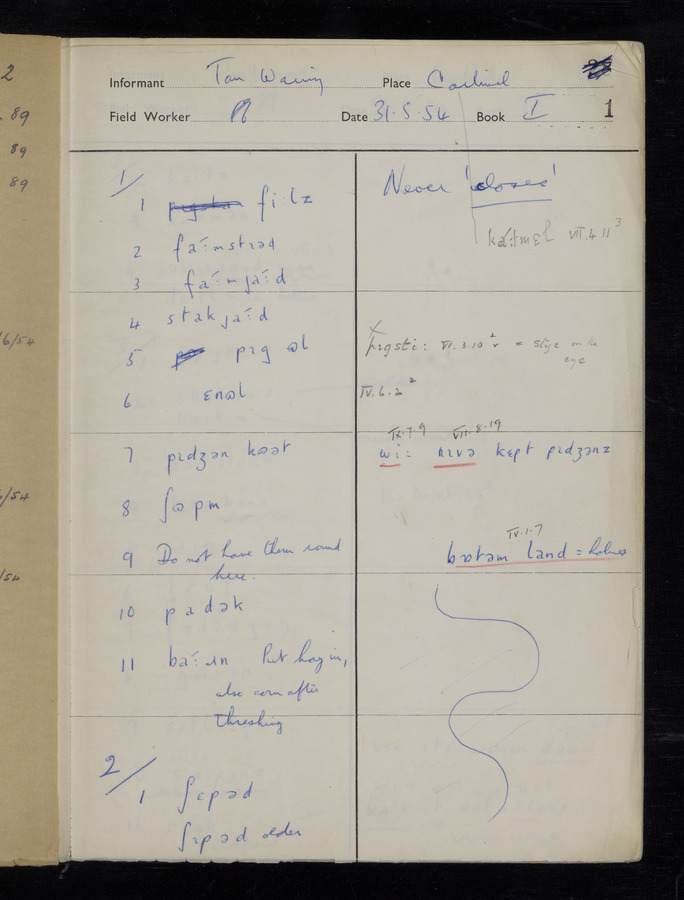 2
89
89
89
6/54
/54
/54
Informant Tom Waring Place Cartmel
Field Worker Date 31.5.54 Book I 1
1/
1 fi:lz
Never 'closes'
ka:tmɛl VII.4.11 3
2 fa:mstɪəd
3 fa:mja:d
4 stakja:d
5 pɪg ɷl
pɪgsti: VI.3.10 2 = stye on the eye
6 ɛnɷl
IV.6.2 2
IX.7.9 VII.8.19
7 pɪdʒən kɷət
wi: nɪvə kɛpt pɪdʒənz
8 ʃɷpm
9 Do not have them round
here.
IV.1.7
bɒtəm land = holms
10 padək
11 ba:ɹn Put hay in,
also corn after
threshing
2/
1 ʃɛpəd
ʃɪpəd older